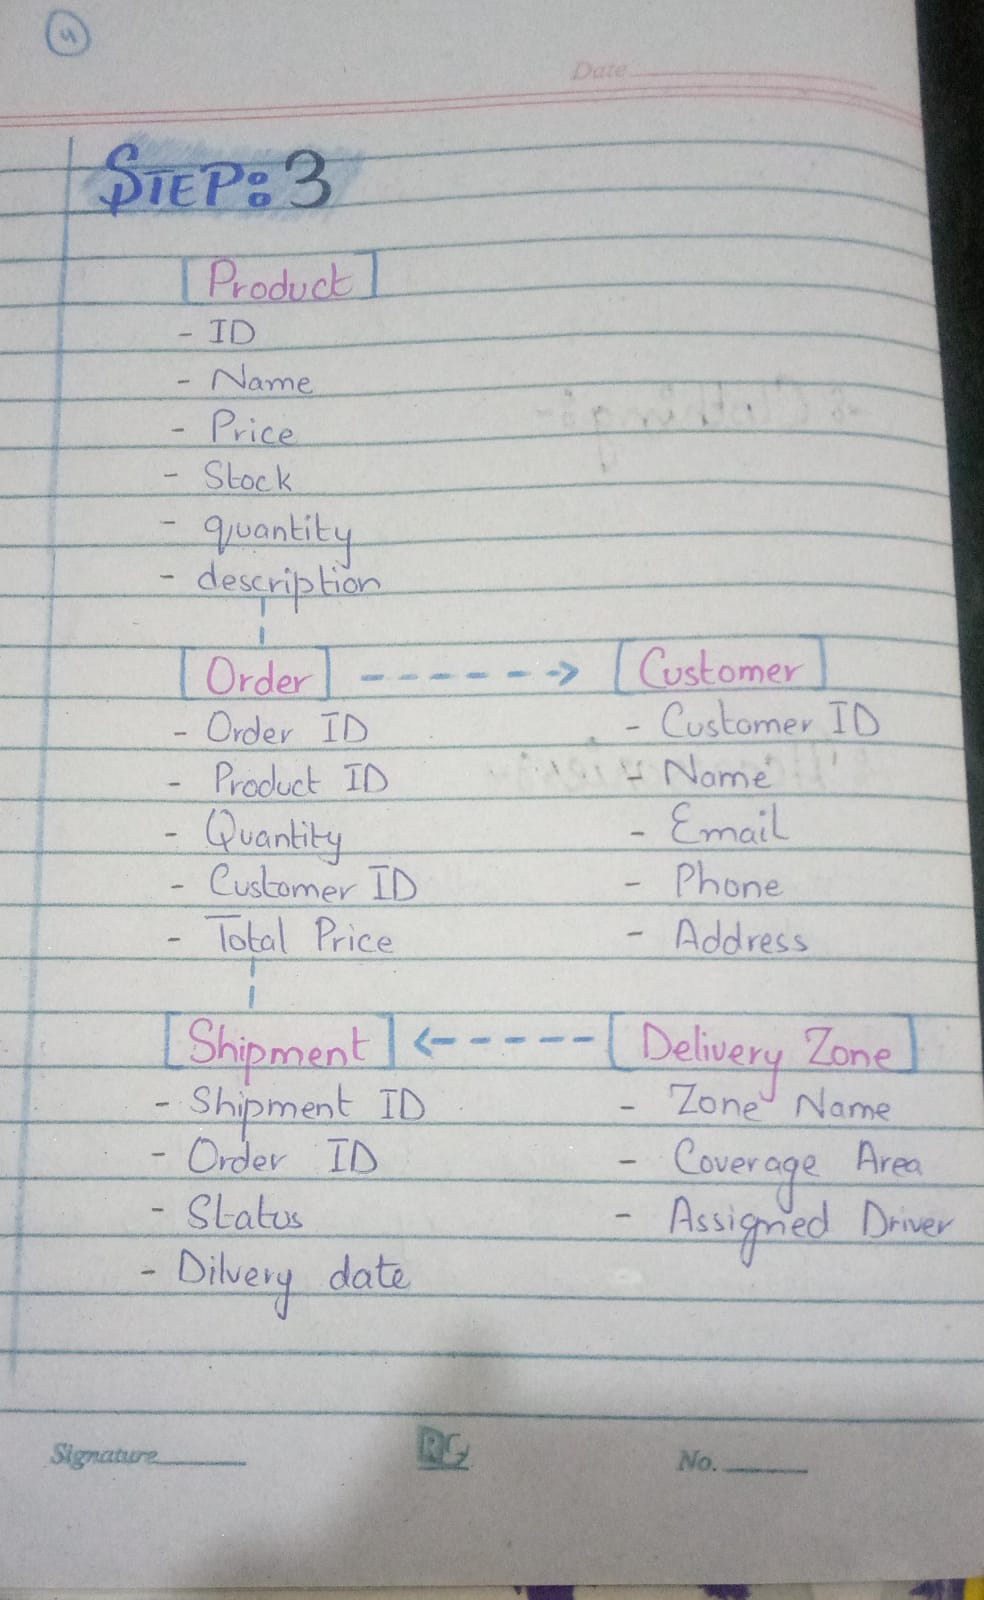 4
Date
STEP: 3
[Product]
- ID
- Name
- Price
- Stock
- quantity
- description
[Order] ------> [Customer]
- Order ID
- Product ID
- Quantity
- Customer ID
- Total Price
- Customer ID
- Name
- Email
- Phone
- Address
[Shipment] <----- [Delivery Zone]
- Shipment ID
- Order ID
- Status
- Dilvery date
- Zone Name
- Coverage Area
- Assigned Driver
Signature
RG
No.